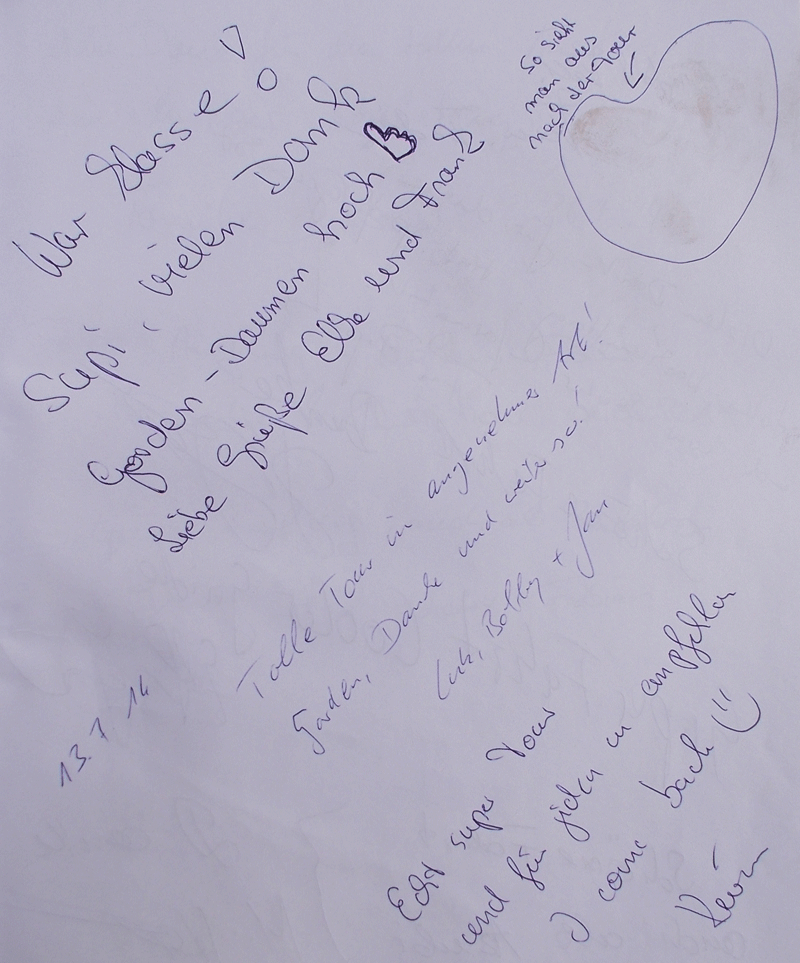 War klasse!
Supi, vielen Dank
Gorden - Daumen hoch
Liebe Grüße Elke und Frank
So sieht
man aus
nach der Tour
Tolle Tour in angenehmer Art!
Gorden, Danke und weiter so!
Bobby + Jan
13.7.14
Echt super Tour
und für jeden zu empfehlen
I come back
Kevin